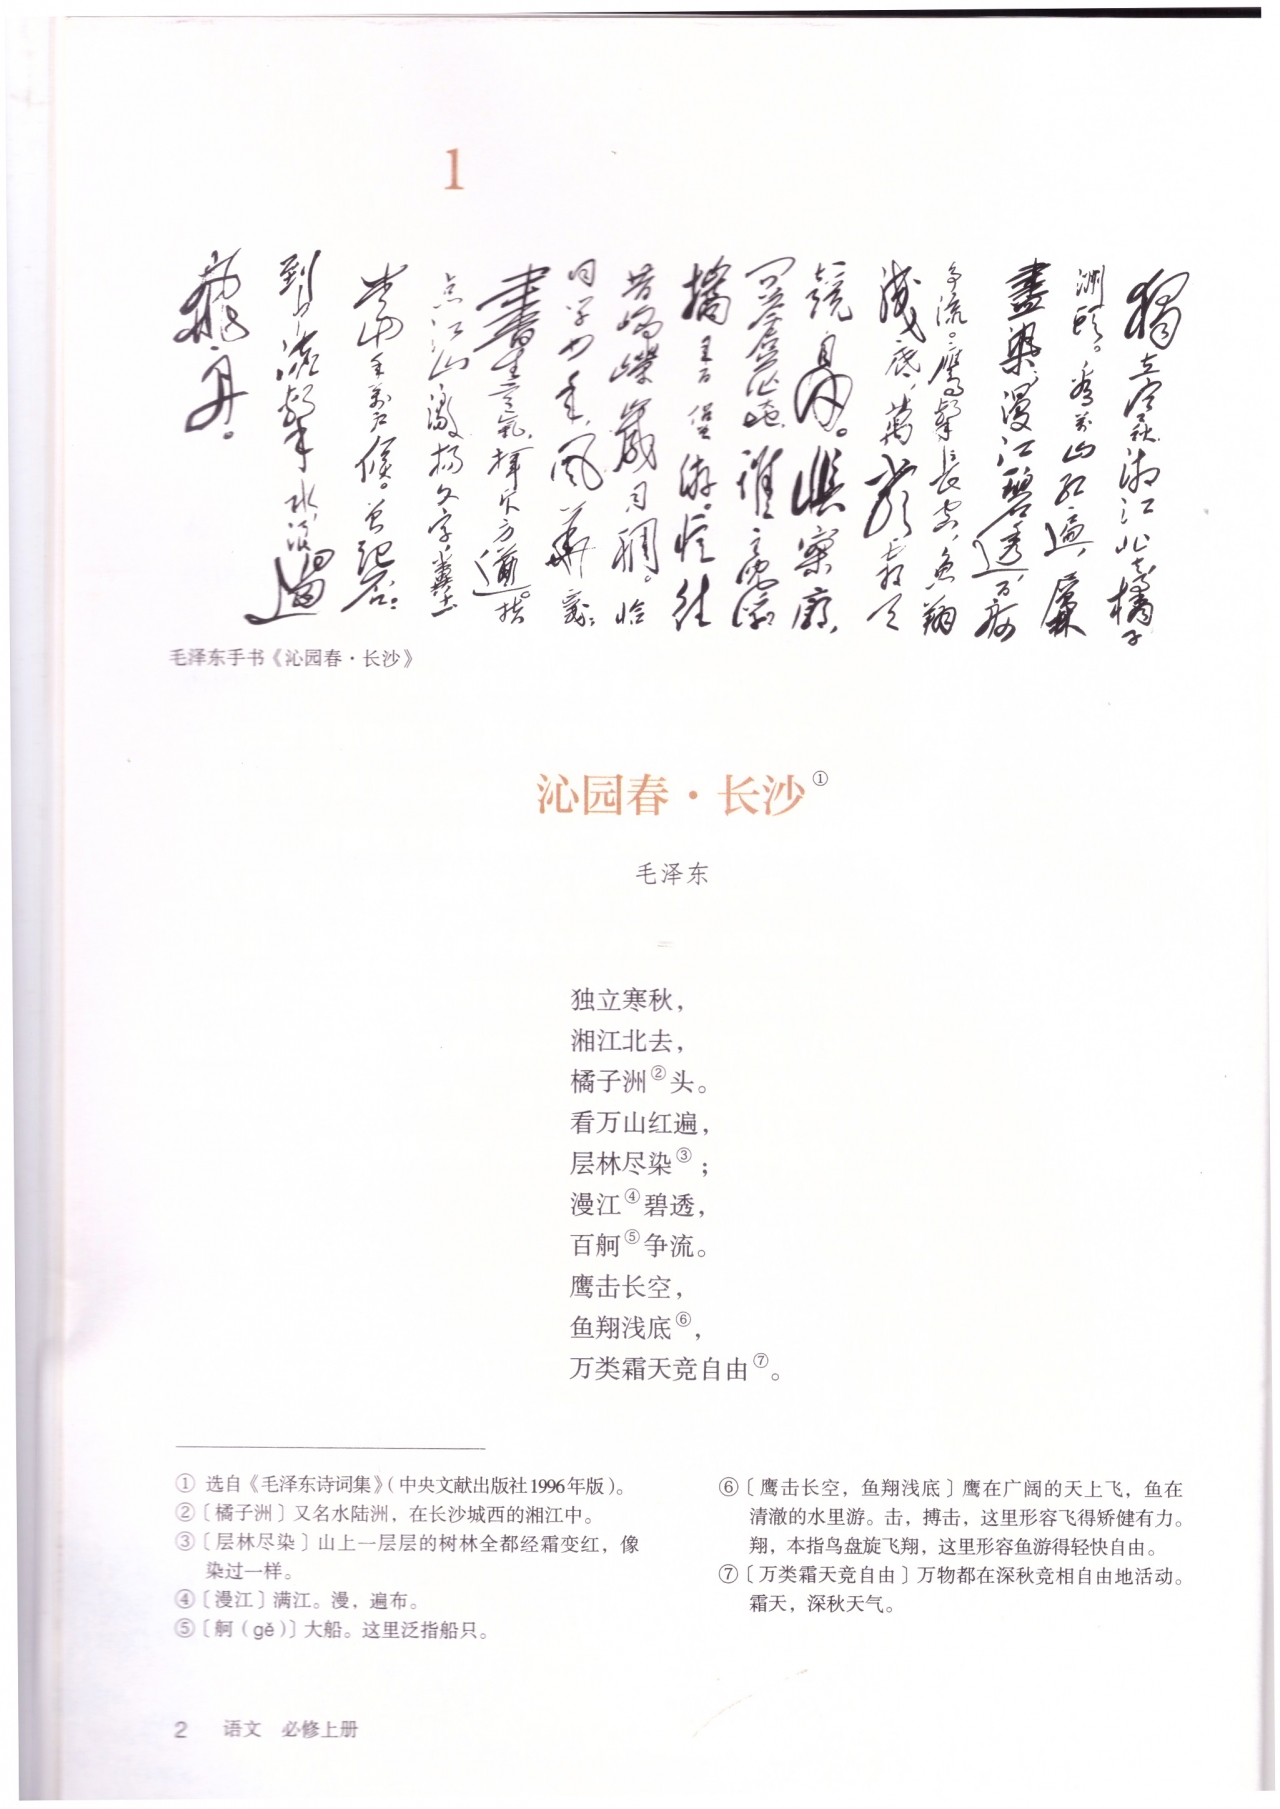 1
獨立寒秋湘江北去橘子
洲頭。看萬山紅遍,層林
盡染,漫江碧透,百舸
争流。鷹擊長空,魚翔
淺底,萬類霜天
競自由。悵寥廓,
問蒼茫大地,誰主沉浮
攜來百侣曾游。憶往
昔崢嶸歲月稠。恰
同學少年,風華正茂;
書生意氣,揮斥方遒。指
点江山,激揚文字,糞土
當年萬户侯。曾記否:
到中流擊水,浪遏
飛舟。
毛泽东手书《沁园春·长沙》
沁园春·长沙①
毛泽东
独立寒秋,
湘江北去,
橘子洲②头。
看万山红遍,
层林尽染③;
漫江④碧透,
百舸⑤争流。
鹰击长空,
鱼翔浅底⑥,
万类霜天竞自由⑦。
① 选自《毛泽东诗词集》(中央文献出版社1996年版)。
②〔橘子洲〕又名水陆洲,在长沙城西的湘江中。
③〔层林尽染〕山上一层层的树林全都经霜变红,像
染过一样。
④〔漫江〕满江。漫,遍布。
⑤〔舸(gě)〕大船。这里泛指船只。
⑥〔鹰击长空,鱼翔浅底〕鹰在广阔的天上飞,鱼在
清澈的水里游。击,搏击,这里形容飞得矫健有力。
翔,本指鸟盘旋飞翔,这里形容鱼游得轻快自由。
⑦〔万类霜天竞自由〕万物都在深秋竞相自由地活动。
霜天,深秋天气。
2 语文 必修上册